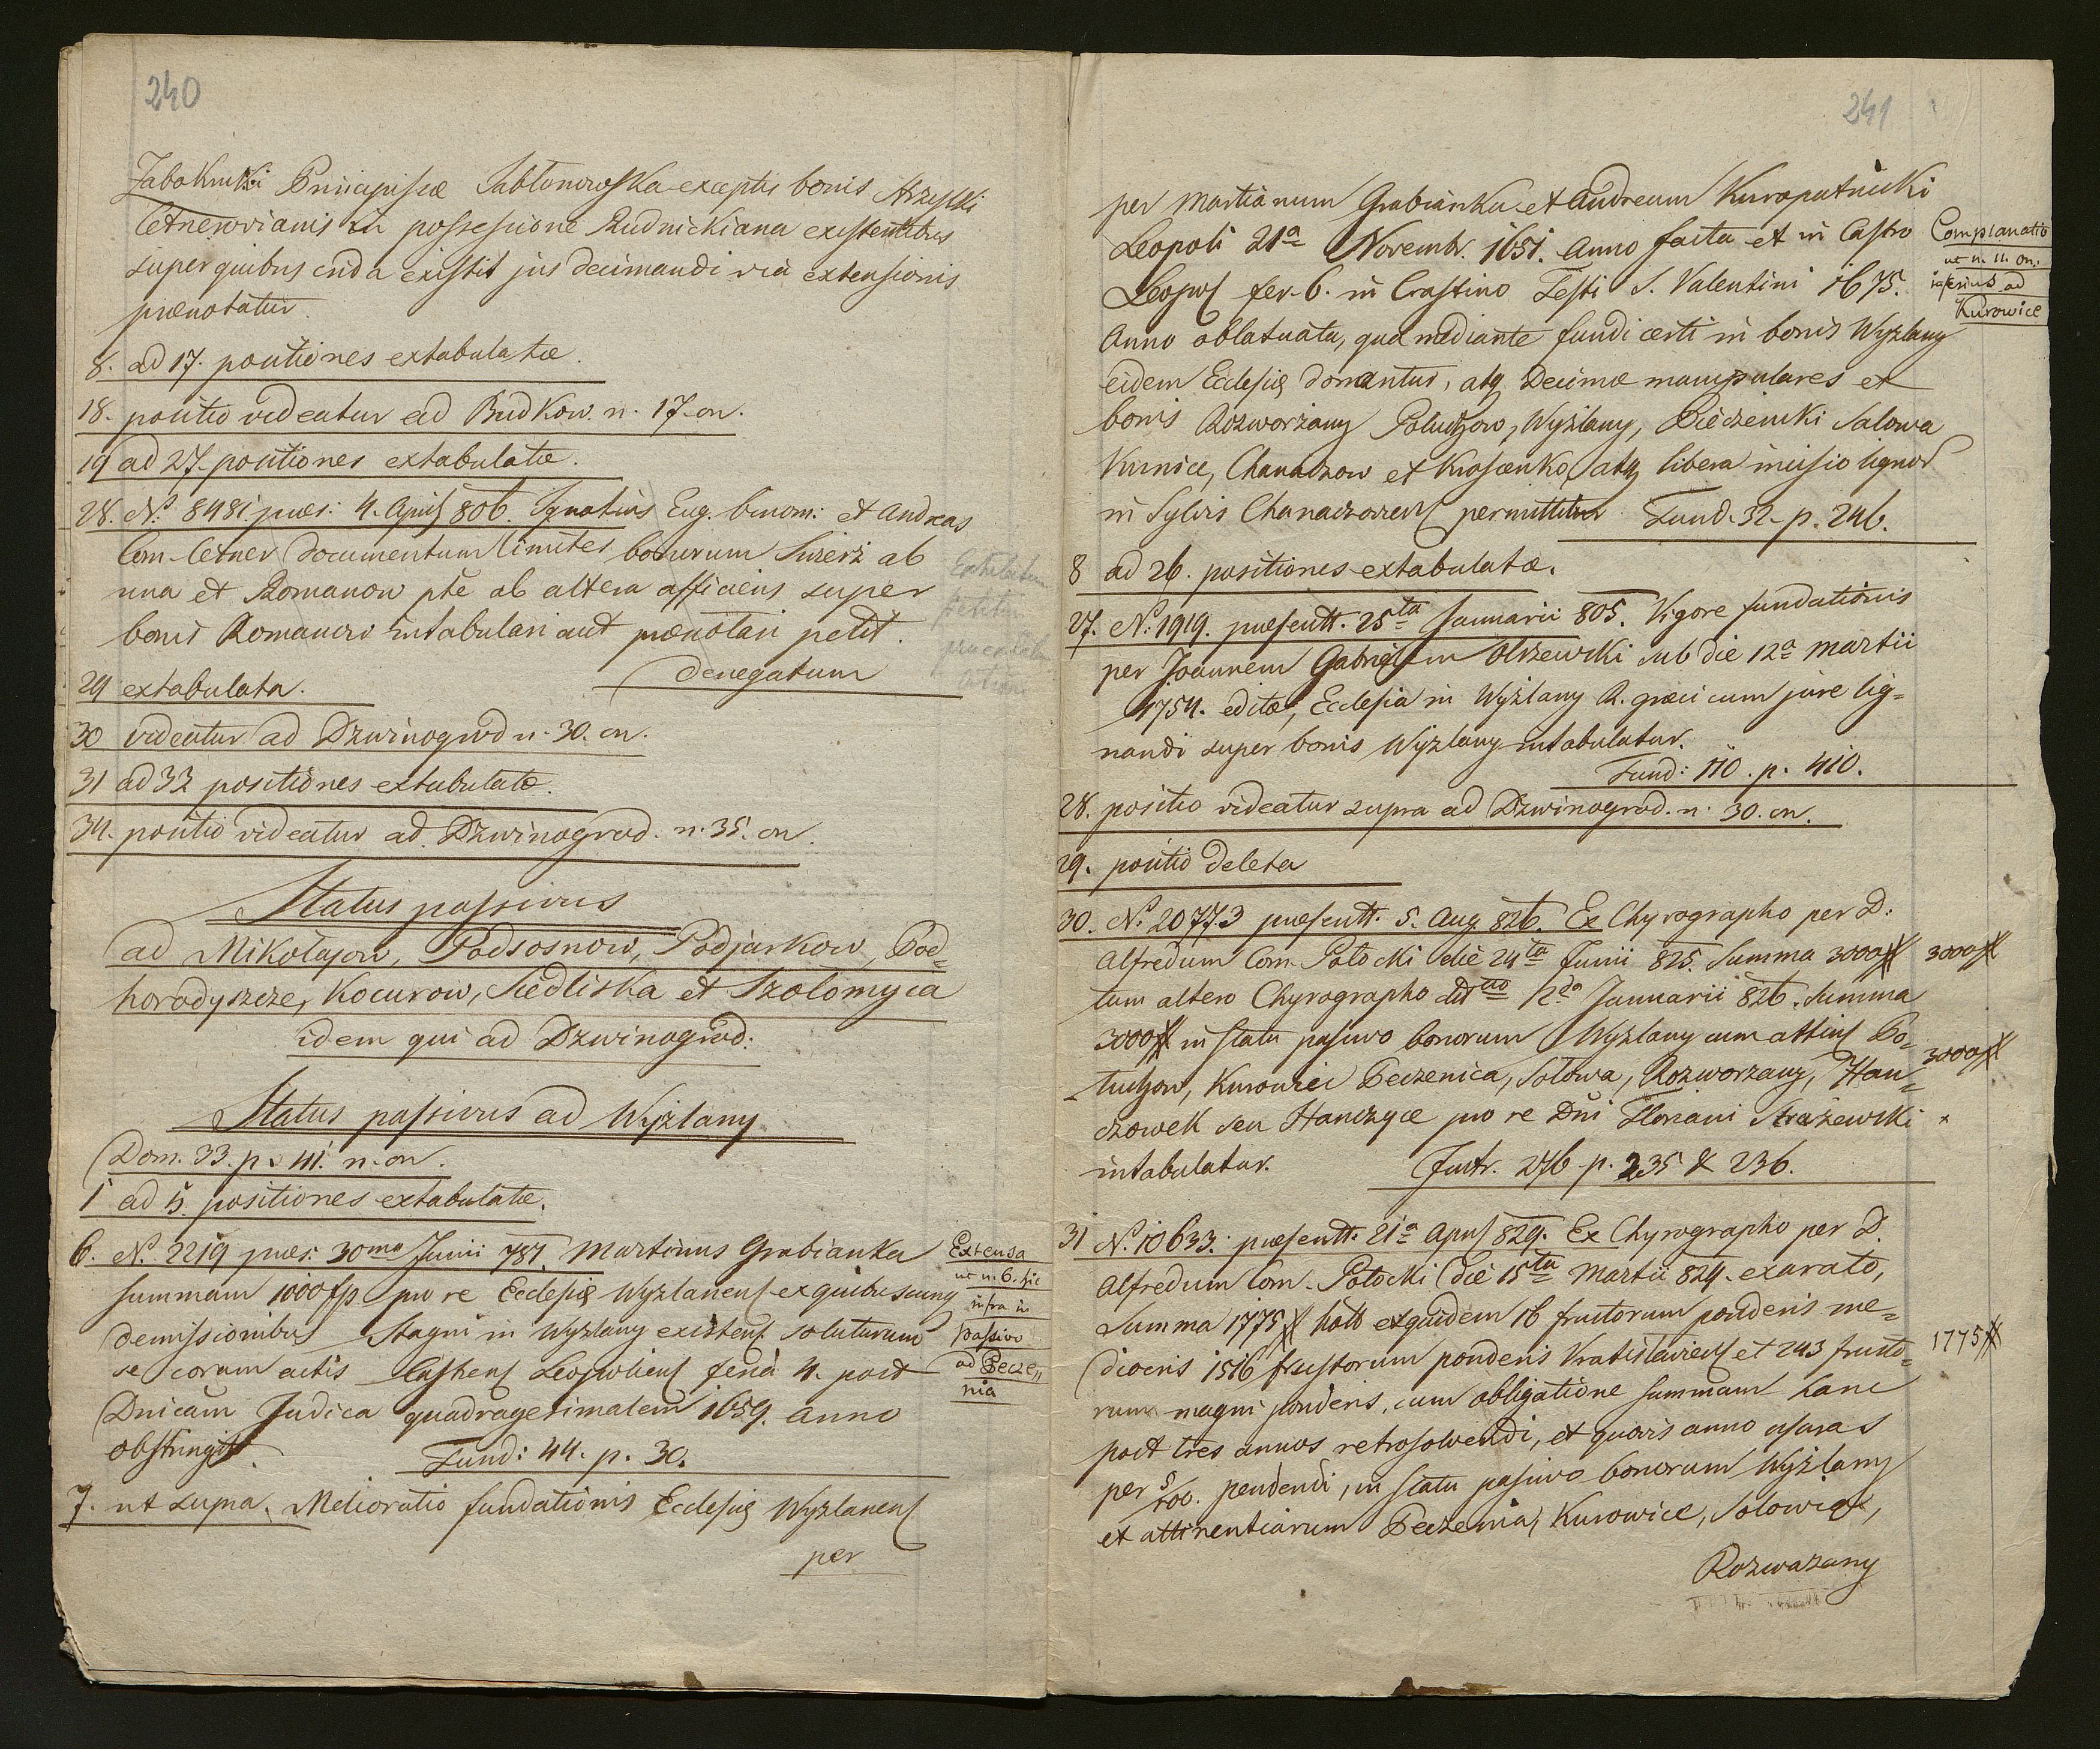 240
Zabokruki Principissæ Jabłonowska exceptis bonis
Cetnerovianis in possessione Rudnickiana existentibus
super quibus existit jus decimandi via extensionis
prænotatur.
8. ad 17. positiones extabulatæ.
18. positio videatur ad Budkow. n. 17. on.
19 ad 27. positiones extabulatæ.
28. N: 8481 præs: 4. April 806. Ignatius Eug. binom: et Andreas
Com. Cetner Documentum limites bonorum Swierz ab
una et Romanow pte ab altera afficiens super
bonis Romanow intabulari aut prænotari petit.
denegatum
29 extabulata.
30 videatur ad Dzwinogrod n. 30. on.
31 ad 33 positiones extabulatæ.
34. positio videatur ad Dzwinogrod. n. 35. on.
Status passivus
ad Mikołajow, Podsosnow, Podjarkow, Pod=
horodyszcze, Kocurow, Siedliska et Szołomyia
idem qui ad Dzwinogrod:
Status passivus ad Wyżlany
Dom. 33. p. 41. n. on.
1 ad 5. positiones extabulatæ.
6. N. 2219 præs: 30ma Junii 781. Martinus Grabianka
summam 1000 fp pro re Ecclesiæ Wyżlanens ex quibuscunq
demissionibus Stagni in Wyżlany existens. soluturum
se coram actis Castrens Leopoliens feria 4. post
Dnicam Judica quadragesimalem 1659. anno
obstringit.
Fund: 44. p. 30.
Extensa
ut n. 6. hic
infra in
passivo
ad Pecze„
nia
7. ut supra. Melioratio fundationis Ecclesiæ Wyżlanens
per
241
per Martianum Grabianka et Andream Kuropatnicki
Leopoli 21a Novembr. 1651. Anno facta et in Castro
Leopol fer. 6. in Crastino Festi S. Valentini 1675.
Anno oblatuata, qua mediante fundi certi in bonis Wyżlany
eidem Ecclesiæ donantur, atq Decimæ manipulares ex
bonis Rozworżany Połuchow, Wyżlany, Pieczenicki Salowa
Kurnice, Chanaczow et Kroscenko, atq libera incisio lignor
in Sylvis Chanaczoviens permittitur Fund. 32. p. 246.
Complanatio
ut n. 11. on.
inferius ad
Kurowice
8 ad 26. positiones extabulatæ.
27. N: 1919. præsentt. 25ta Januarii 805. Vigore fundationis
per Joannem Gabrielem Olszewski sub die 12a Martii
1754. editæ, Ecclesia in Wyżlany R. græci cum jure lig=
nandi super bonis Wyżlany intabulatur.
Fund: 110. p. 410.
28. positio videatur supra ad Dzwinogrod. n. 30. on.
29. positio deleta
30. N: 20773 præsentt. 5. Aug. 826. Ex Chyrographo per D:
Alfredum Com. Potocki die 24ta Junii 825. Summa 3000#
3000#
tum altero Chyrographo ddto 12da Januarii 826. Summa
3000# in statu passivo bonorum Wyżlany cum attins Po=
3000#
łuchow, Kurowice Peczenica, Solowa, Rozworzany, Han=
czowek seu Hanczyce pro re Dni Floriani Strażewski
intabulatur. Instr. 276 p. 235 & 236.
31 N. 10633. præsentt. 21a April 829. Ex Chyrographo per D.
Alfredum Com. Potocki die 15ta Martii 829. exarato,
Summa 1775# holl et quidem 16 frustorum ponderis me=
1775#
diocris 1516 frustorum ponderis Vratislaviens et 243 frusto=
rum magni ponderis, cum obligatione summam hanc
post tres annos retrosolvendi, et quovis anno usuras
per 5/100. pendendi, in statu passivo bonorum Wyżlany
et attinentiarum Peczenia, Kurowice, Solowa,
Rozwazany